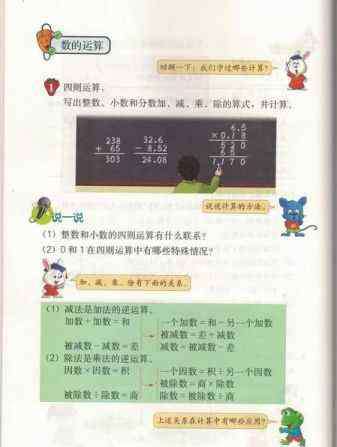 数的运算
回顾一下：我们学过哪些计算？
1 四则运算。
写出整数、小数和分数加、减、乘、除的算式，并计算。
238
+ 65
303
32.6
- 8.52
24.08
6.5
× 0.18
520
65
1.170
说说计算的方法。
说一说
(1) 整数和小数的四则运算有什么联系？
(2) 0 和 1 在四则运算中有哪些特殊情况？
加、减、乘、除有下面的关系。
(1) 减法是加法的逆运算。
加数＋加数＝和 一个加数＝和－另一个加数
被减数＝差＋减数
被减数－减数＝差 减数＝被减数－差
(2) 除法是乘法的逆运算。
因数×因数＝积 一个因数＝积÷另一个因数
被除数＝商×除数
被除数÷除数＝商 除数＝被除数÷商
上述关系在计算中有哪些应用？